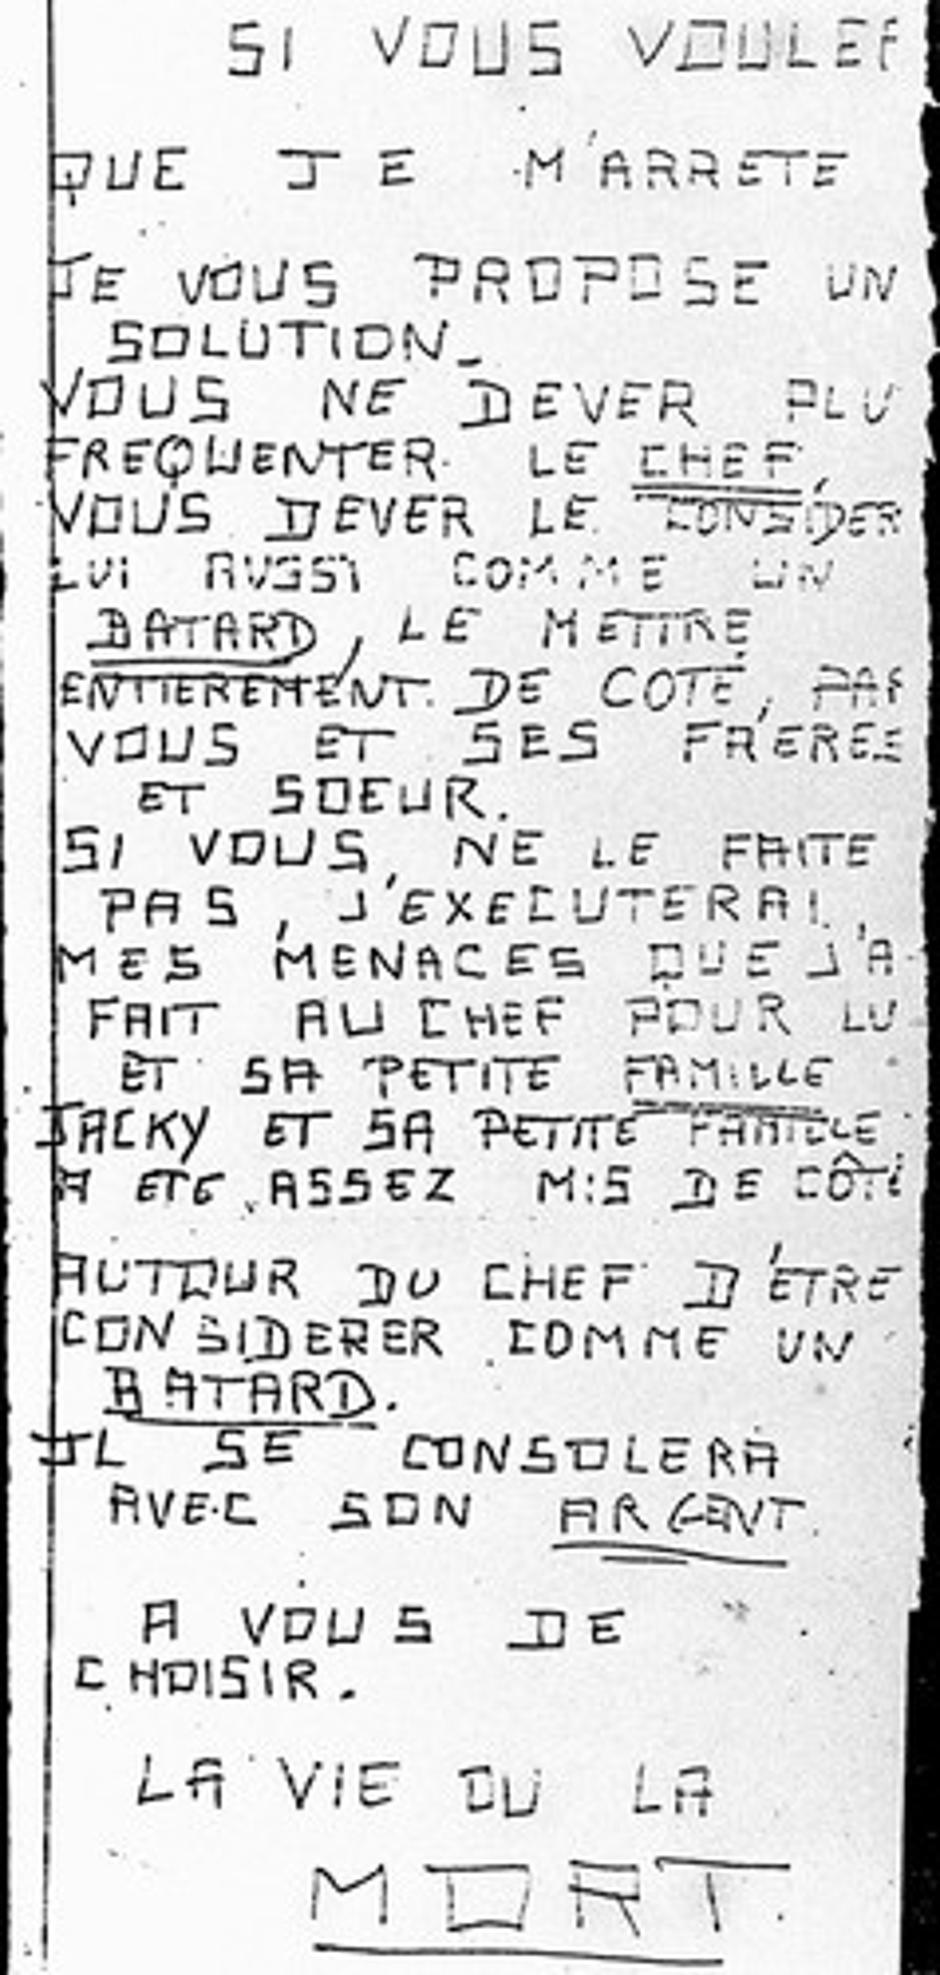 SI VOUS VOULER
QUE JE M'ARRETE
JE VOUS PROPOSE UN
SOLUTION_
VOUS NE DEVER PLU
FREQUENTER LE CHEF,
VOUS DEVER LE CONSIDER
LUI AUSSI COMME UN
BATARD, LE METTRE
ENTIEREMENT DE COTE, PAR
VOUS ET SES FRERES
ET SOEUR.
SI VOUS NE LE FAITE
PAS, J'EXECUTERAI,
MES MENACES QUE J'A
FAIT AU CHEF POUR LU
ET SA PETITE FAMILLE
JACKY ET SA PETITE FAMILLE
A ETE ASSEZ MIS DE CÔTÉ
AUTOUR DU CHEF D'ÊTRE
CONSIDERER COMME UN
BATARD.
IL SE CONSOLERA
AVEC SON ARGENT.
A VOUS DE
CHOISIR.
LA VIE OU LA
MORT.